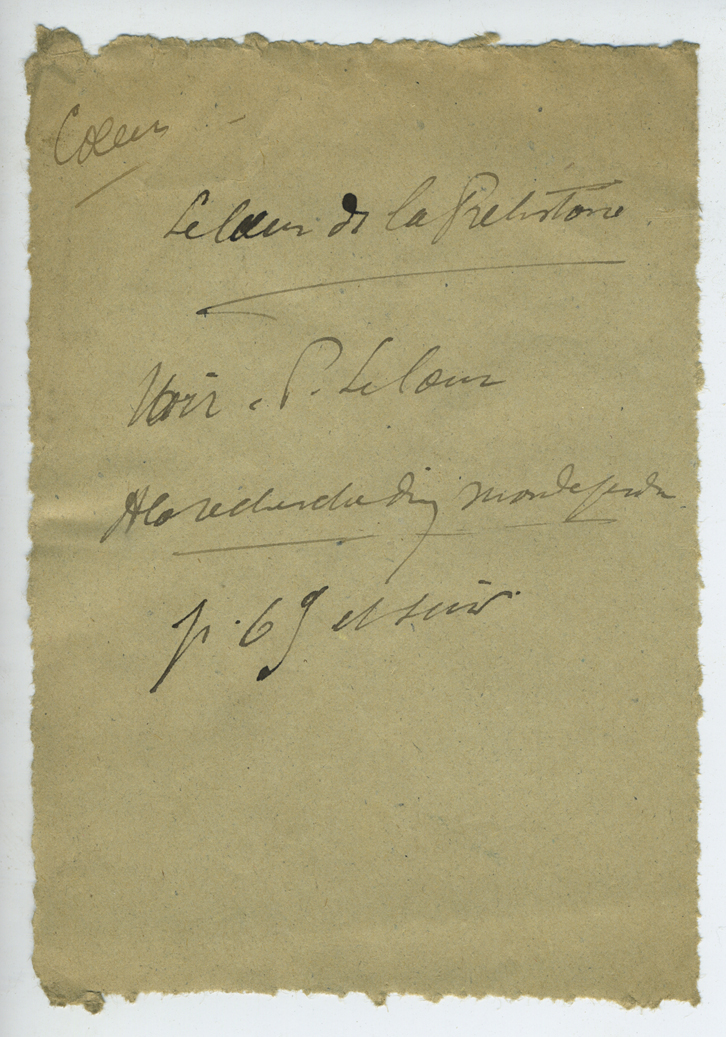 Coeur
Le Coeur de la Préhistoire
Voir P. Lecoeur
A la recherche d'un monde perdu
p. 69 et suiv.